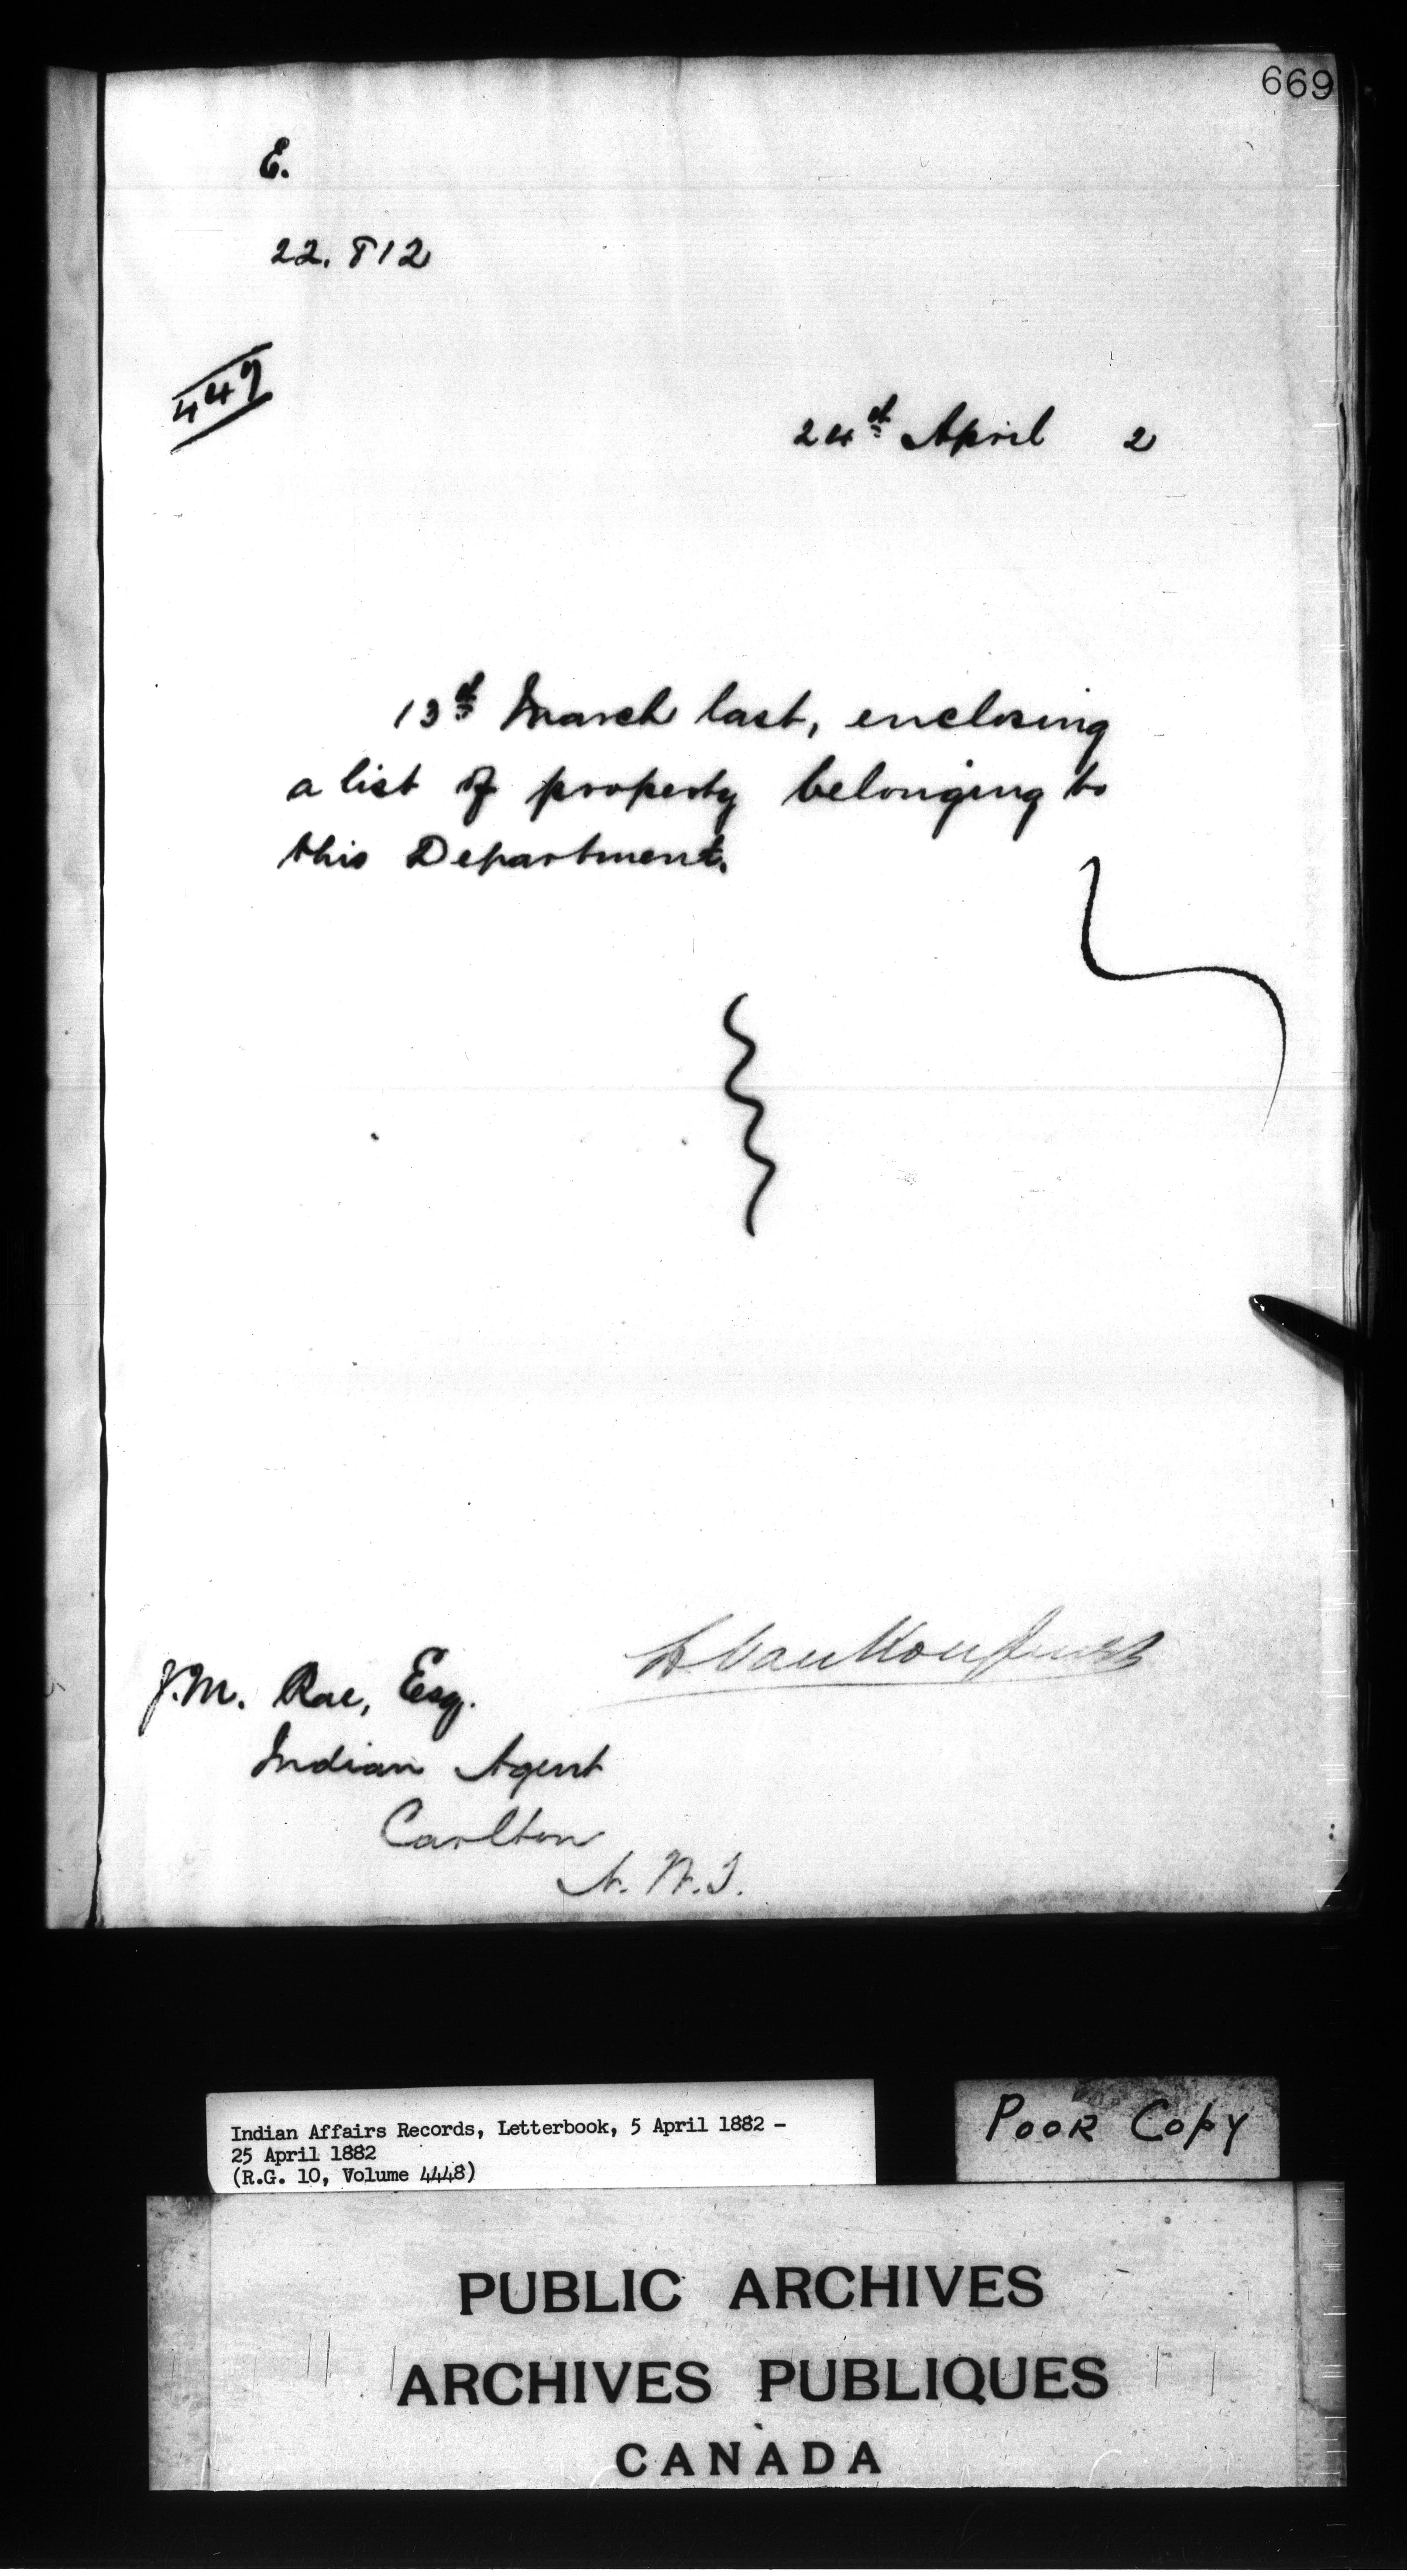 669
E.
22.812
449
24th April 2
13th March last, enclosing
a list of property belonging to
this Department.
L. Vankoughnet
J.M. Rae, Esq.
Indian Agent
Carlton
N.W.T.
Indian Affairs Records, Letterbook, 5 April 1882 -
25 April 1882
(R.G. 10, Volume 4448)
POOR COPY
PUBLIC ARCHIVES
ARCHIVES PUBLIQUES
CANADA